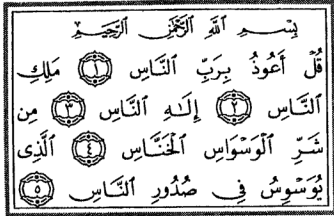 بِسْمِ اللَّهِ الرَّحْمَٰنِ الرَّحِيمِ
قُلْ أَعُوذُ بِرَبِّ النَّاسِ ١ مَلِكِ
النَّاسِ ٢ إِلَٰهِ النَّاسِ ٣ مِن
شَرِّ الْوَسْوَاسِ الْخَنَّاسِ ٤ الَّذِى
يُوَسْوِسُ فِى صُدُورِ النَّاسِ ٥